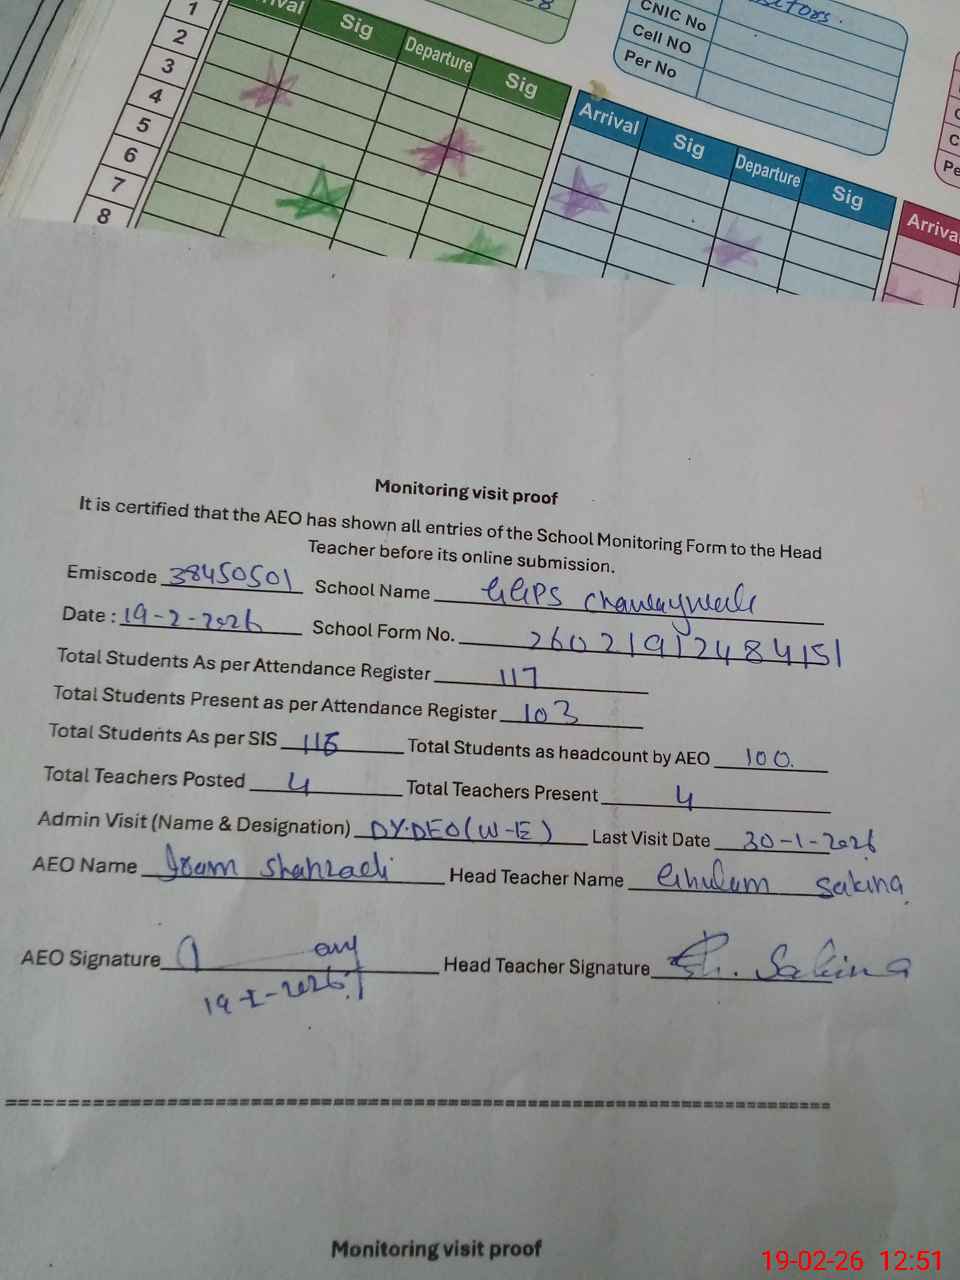 8
itors.
CNIC No
Cell NO
Per No
Pe
1
2
3
4
5
6
7
8
Sig Departure Sig
Arrival Sig Departure Sig
Arriva
Monitoring visit proof
It is certified that the AEO has shown all entries of the School Monitoring Form to the Head
Teacher before its online submission.
Emiscode 38450501 School Name GGPS
Date : 19-2-2026 School Form No. 26021912484151
Total Students As per Attendance Register 117
Total Students Present as per Attendance Register 103
Total Students As per SIS Total Students as headcount by AEO 100.
Total Teachers Posted 4 Total Teachers Present 4
Admin Visit (Name & Designation) DY.DEO(W-E) Last Visit Date 30-1-2026
AEO Name Iram Shahzadi Head Teacher Name Ghulam Sakina
AEO Signature Head Teacher Signature Gh. Sakina
19-2-2026
==========================================================
Monitoring visit proof
19-02-26 12:51